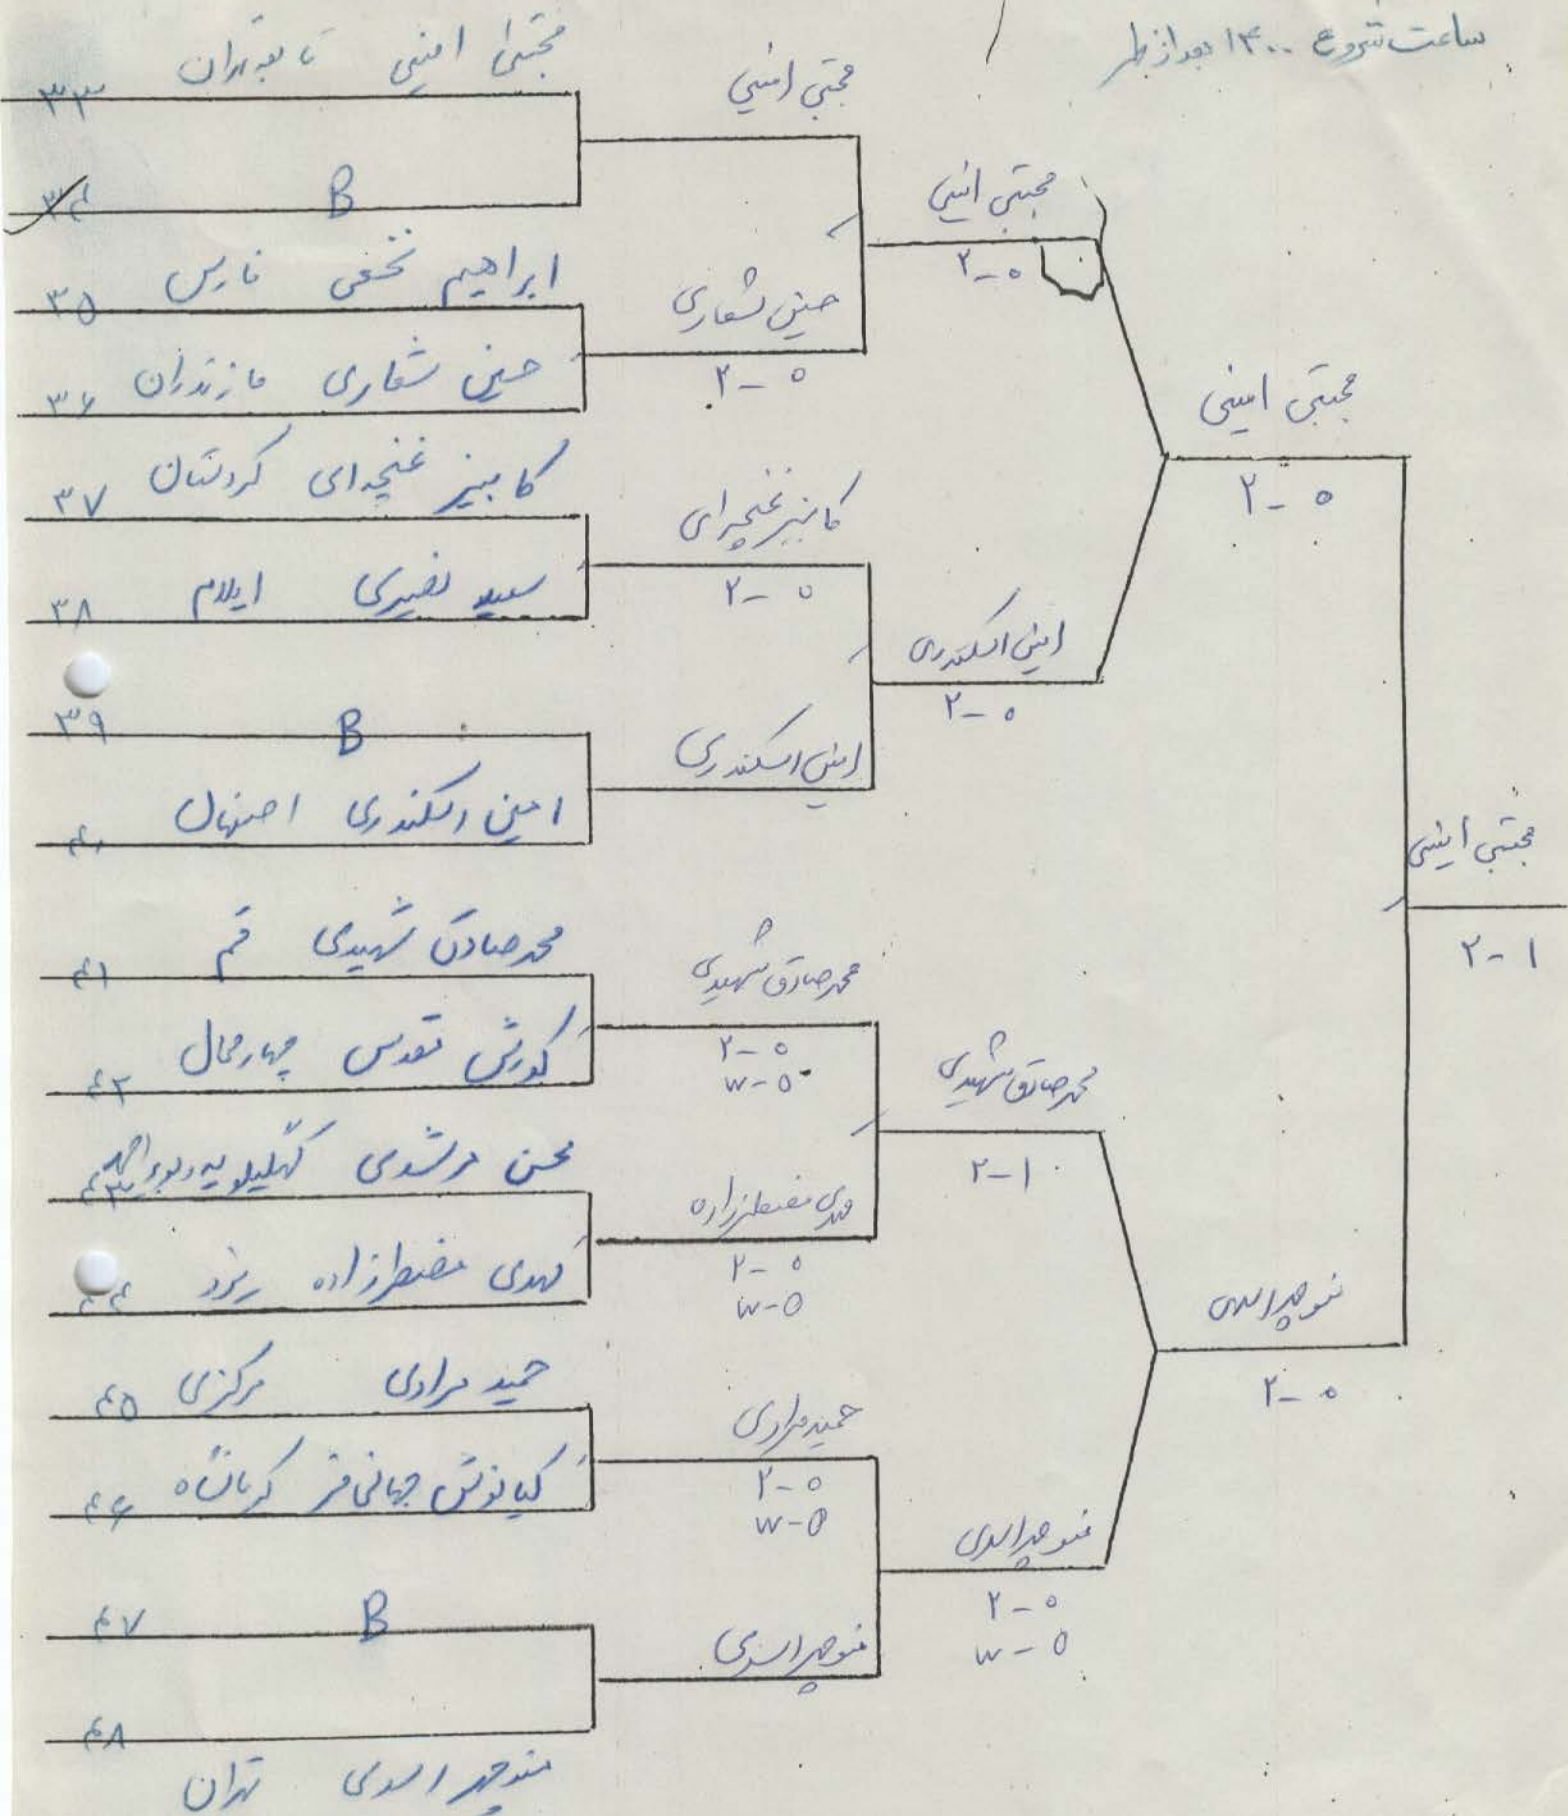 ساعت شروع ۱۴۰۰ بعداز ظهر
۳۳ مجتبی امینی تابعه تهران
۳۴ B
۳۵ ابراهیم نخعی فارس
۳۶ حسین شعاری مازندران
۳۷ کامبیز غنچه‌ای کردستان
۳۸ سعید نصیری ایلام
۳۹ B
۴۰ امین اسکندری اصفهان
۴۱ محمدصادق شهیدی قم
۴۲ کورش تقدس چهارمحال
۴۳ محسن مرشدی کهگیلویه و بویراحمد
۴۴ مهدی مضطرزاده یزد
۴۵ حمید مرادی مرکزی
۴۶ کیانوش جهانی‌فر کرمانشاه
۴۷ B
۴۸
منوچهر اسدی تهران
مجتبی امینی
حسین شعاری
۲-۰
کامبیز غنچه‌ای
۲-۰
امین اسکندری
محمدصادق شهیدی
۲-۰
w-o
مهدی مضطرزاده
۲-۰
w-o
حمید مرادی
۲-۰
w-o
منوچهر اسدی
مجتبی امینی
۲-۰
امین اسکندری
۲-۰
محمدصادق شهیدی
۲-۱
منوچهر اسدی
۲-۰
w-o
مجتبی امینی
۲-۰
منوچهر اسدی
۲-۰
مجتبی امینی
۲-۱